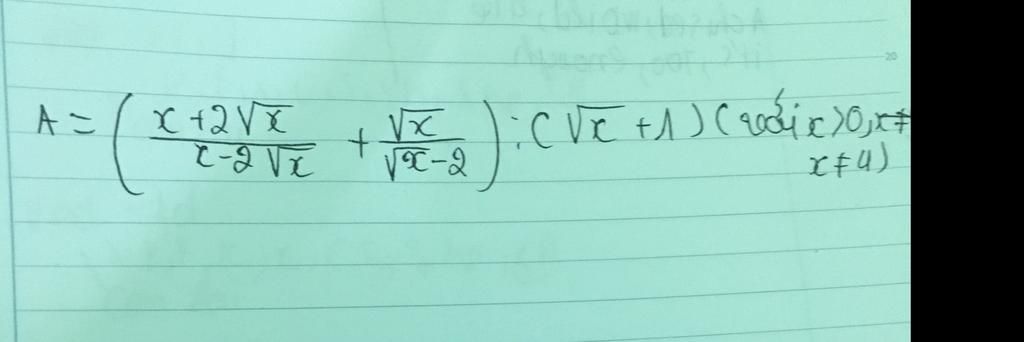 A = ( (x + 2√x)/(x - 2√x) + √x/(√x - 2) ) : (√x + 1) (với x > 0, x ≠
x ≠ 4)
20